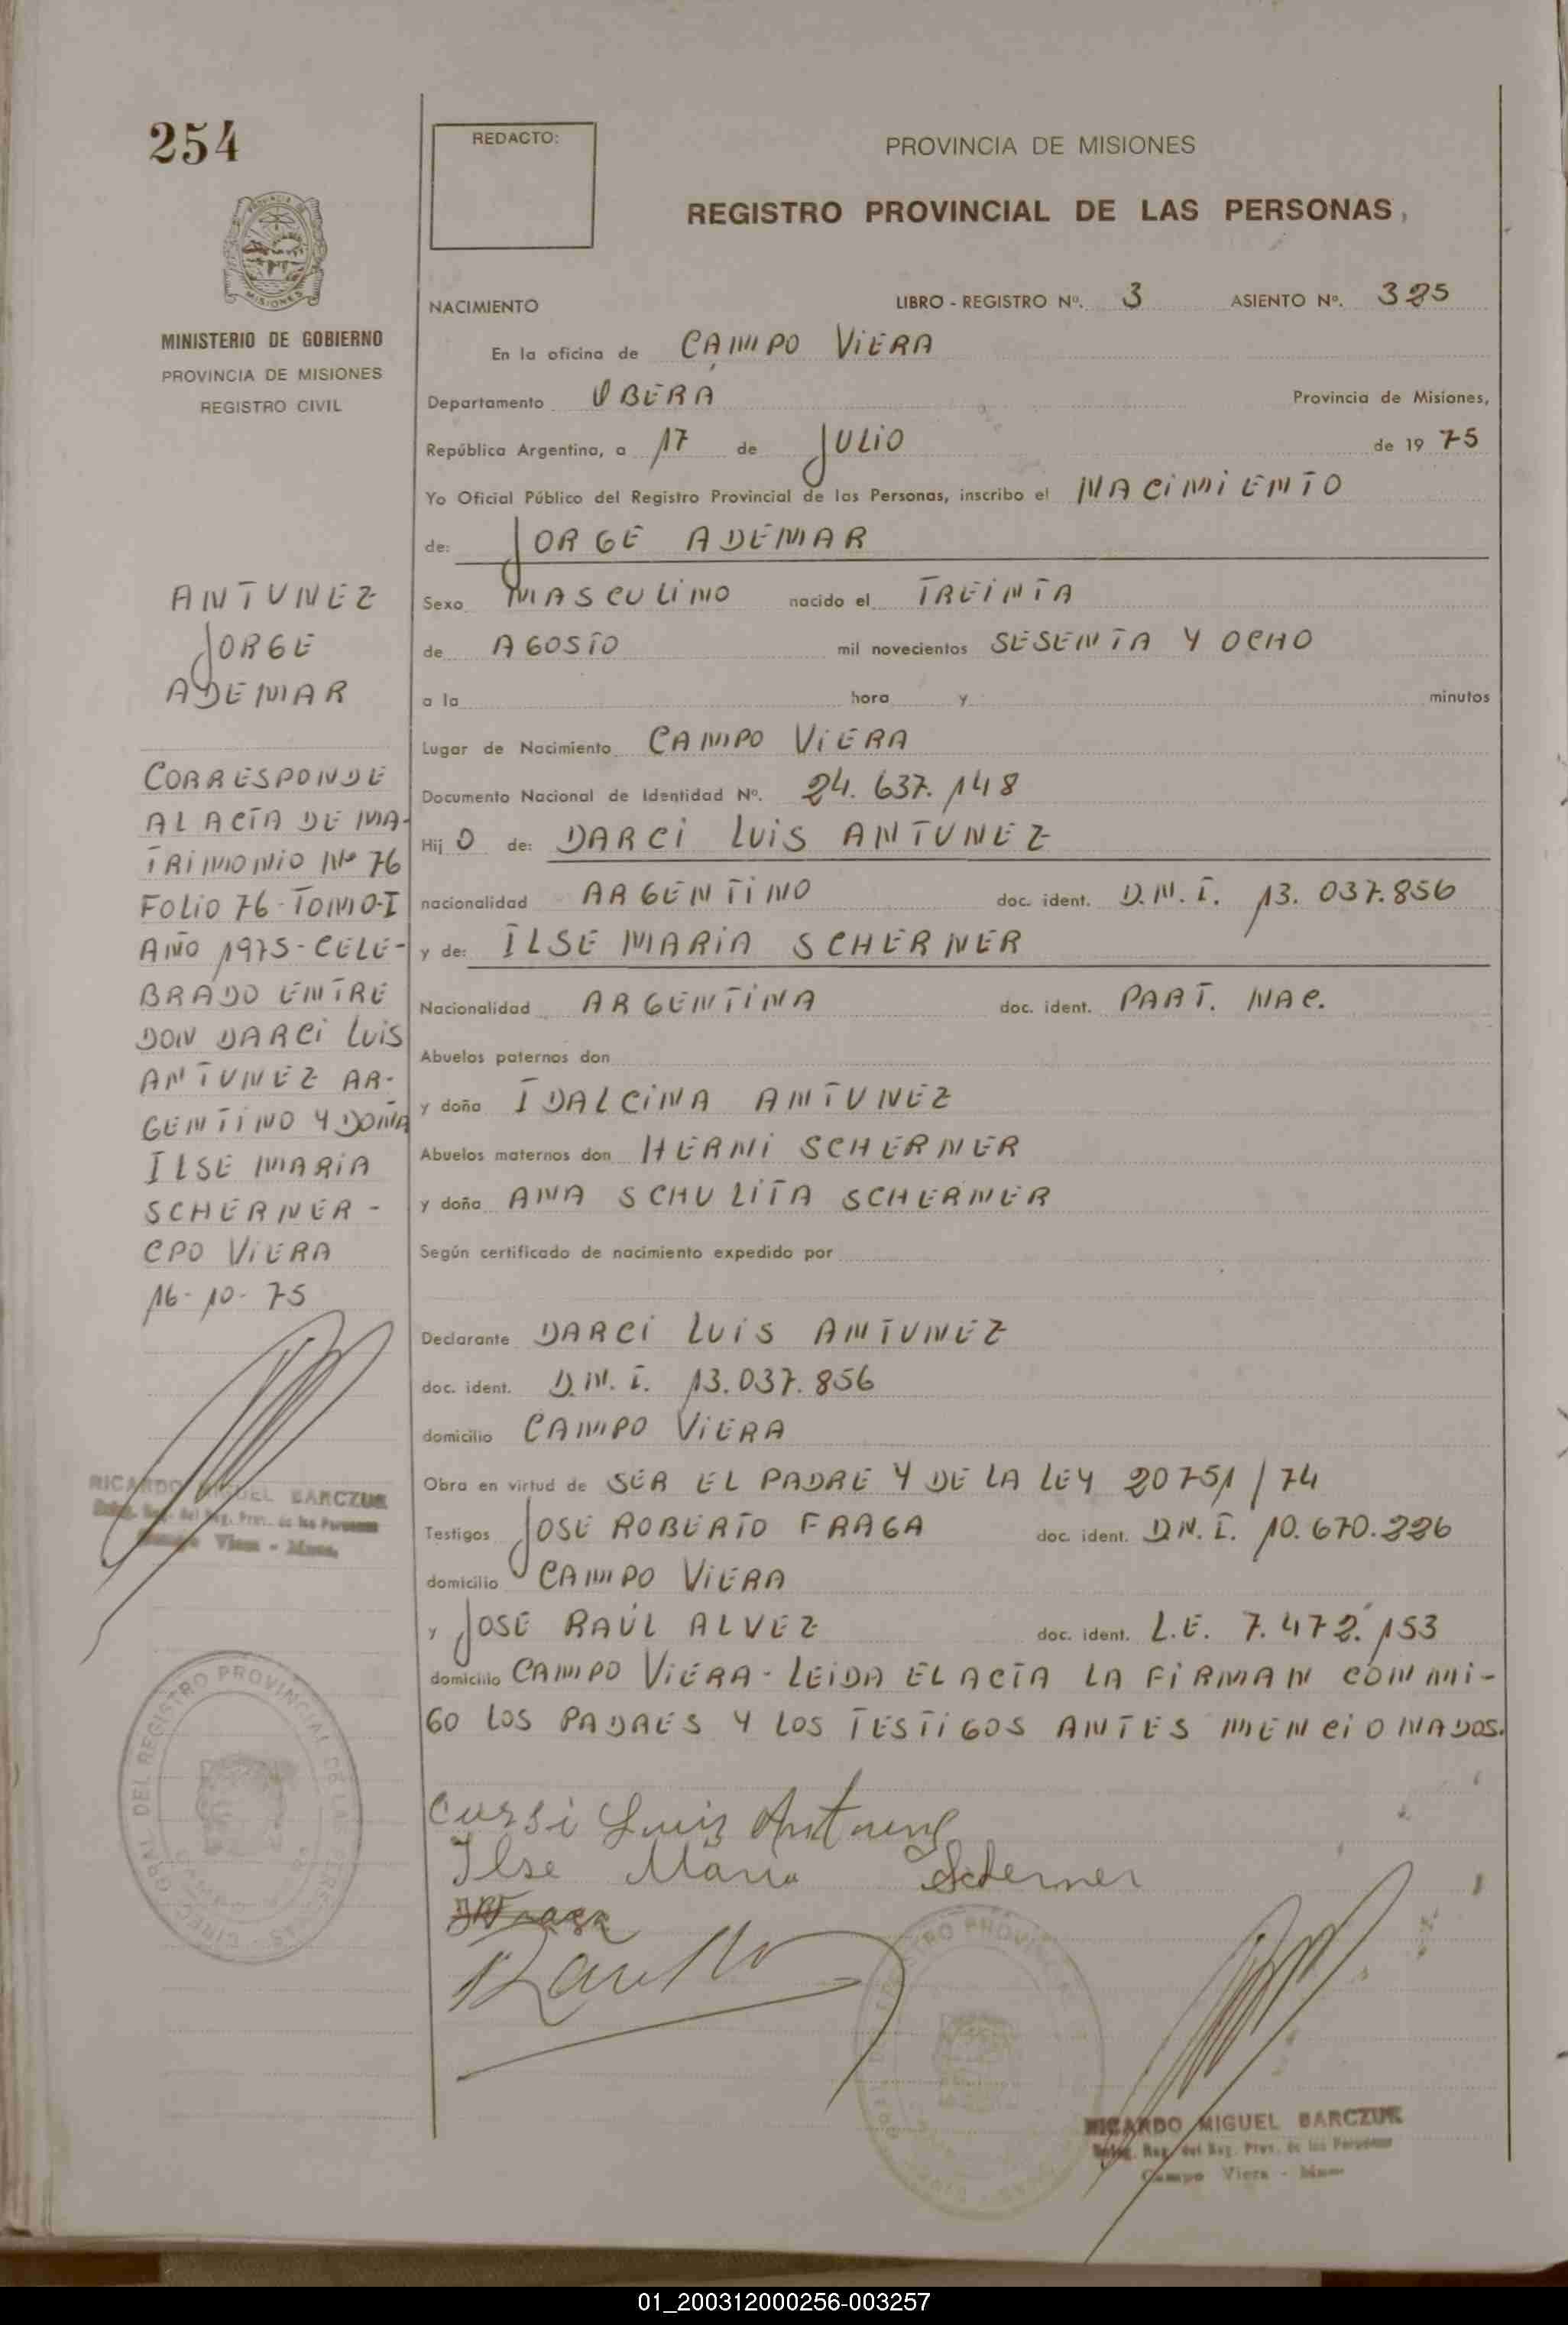 254
REDACTO:
PROVINCIA DE MISIONES
REGISTRO PROVINCIAL DE LAS PERSONAS
MISIONES
MINISTERIO DE GOBIERNO
PROVINCIA DE MISIONES
REGISTRO CIVIL
NACIMIENTO LIBRO - REGISTRO Nº. 3 ASIENTO Nº. 325
En la oficina de CAMPO VIERA
Departamento OBERA Provincia de Misiones,
República Argentina, a 17 de JULIO de 19 75
Yo Oficial Público del Registro Provincial de las Personas, inscribo el NACIMIENTO
de: JORGE ADEMAR
Sexo MASCULINO nacido el TREINTA
de AGOSTO mil novecientos SESENTA Y OCHO
a la hora y minutos
Lugar de Nacimiento CAMPO VIERA
Documento Nacional de Identidad Nº. 24.637.148
Hij O de: DARCI LUIS ANTUNEZ
nacionalidad ARGENTINO doc. ident. D.N.I. 13.037.856
y de: ILSE MARIA SCHERNER
Nacionalidad ARGENTINA doc. ident. PART. NAC.
Abuelos paternos don
y doña IDALCINA ANTUNEZ
Abuelos maternos don HERNI SCHERNER
y doña ANA SCHULITA SCHERNER
Según certificado de nacimiento expedido por
Declarante DARCI LUIS ANTUNEZ
doc. ident. D.N.I. 13.037.856
domicilio CAMPO VIERA
Obra en virtud de SER EL PADRE Y DE LA LEY 20751/74
Testigos JOSE ROBERTO FRAGA doc. ident. D.N.I. 10.670.226
domicilio CAMPO VIERA
y JOSE RAÚL ALVEZ doc. ident. L.E. 7.472.153
domicilio CAMPO VIERA - LEIDA EL ACTA LA FIRMAN CONMI-
GO LOS PADRES Y LOS TESTIGOS ANTES MENCIONADOS.
ANTUNEZ
JORGE
ADEMAR
CORRESPONDE
AL ACTA DE MA-
TRIMONIO Nº 76
FOLIO 76-TOMO-I
AÑO 1975-CELE-
BRADO ENTRE
DON DARCI LUIS
ANTUNEZ AR-
GENTINO Y DOÑA
ILSE MARIA
SCHERNER -
CPO VIERA
16-10-75
RICARDO MIGUEL BARCZUK
Deleg. Reg. del Reg. Prov. de las Personas
Campo Viera - Mnes.
DEL REGISTRO PROVINCIAL DE LAS PERSONAS
Luis
Ilse Maria Scherner
REGISTRO PROVINCIAL
RICARDO MIGUEL BARCZUK
Deleg. Reg. del Reg. Prov. de las Personas
Campo Viera - Mnes.
01_200312000256-003257